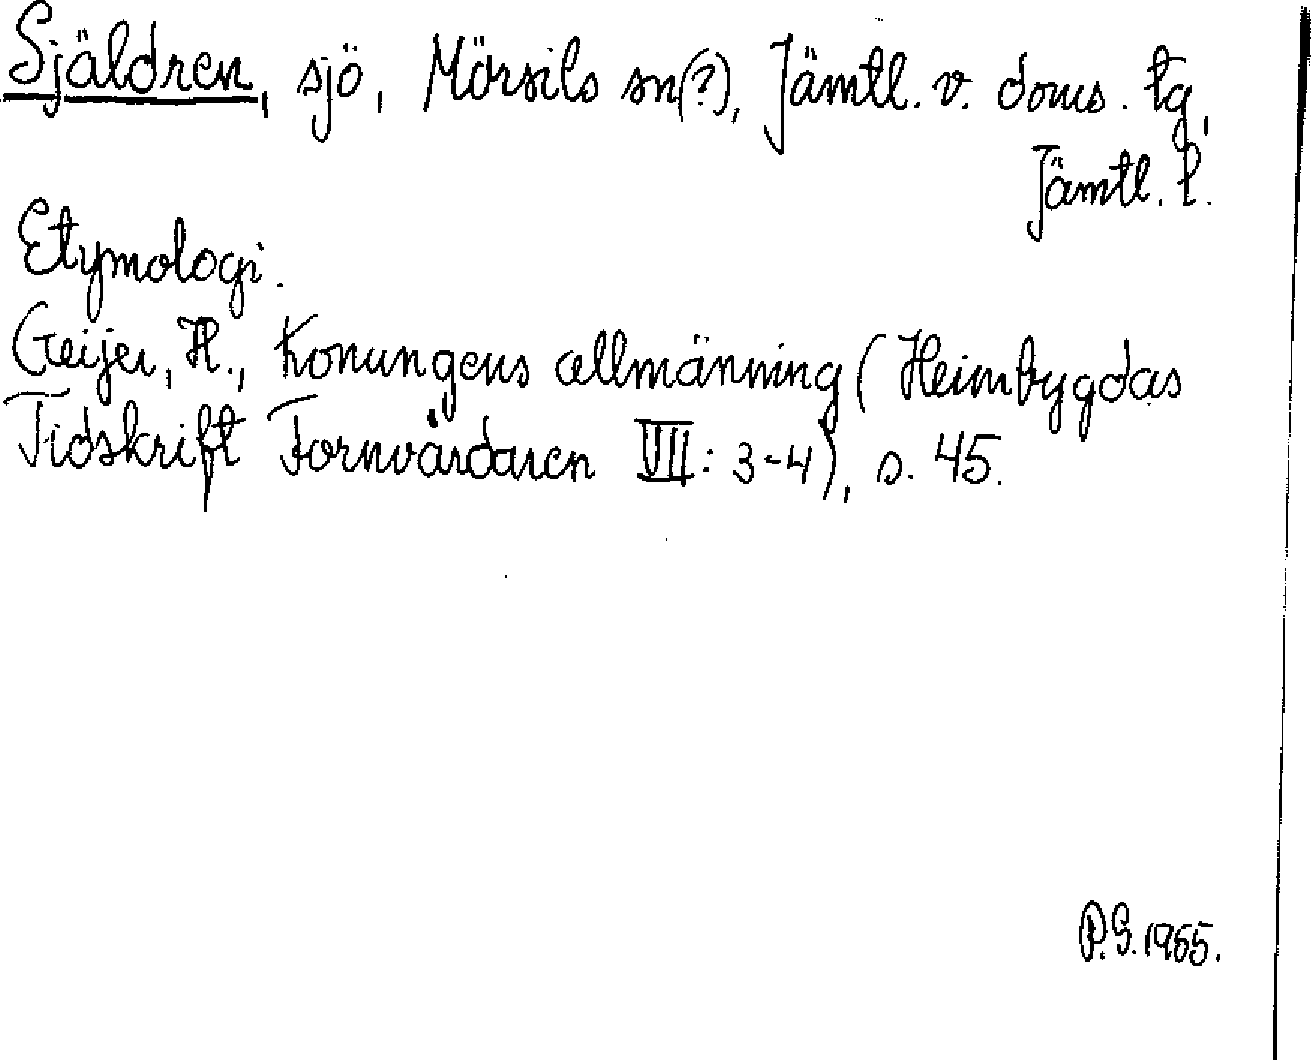 Själdren, sjö, Mörsils sn(?), Jämtl. v. doms. tg,
Jämtl. l.
Etymologi.
Geijer, H., Konungens allmänning (Heimbygdas
Tidskrift Fornvårdaren VII: 3-4), s. 45.
P.S. 1965.